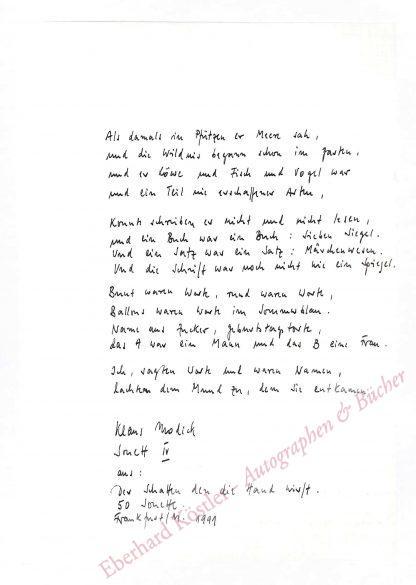 Als damals in Pfützen er Meere sah,
und die Wildnis begann schon im Garten,
und er Löwe und Fisch und Vogel war
und ein Teil nie erschaffener Arten,
Konnte schreiben er nicht und nicht lesen,
und ein Buch war ein Buch : sieben Siegel.
Und ein Satz war ein Satz : Märchenwesen.
Und die Schrift war noch nicht wie ein Spiegel.
Bunt waren Worte, rund waren Worte,
Ballons waren Worte im Sommerblau.
Name aus Zucker, Geburtstagstorte,
das A war ein Mann und das B eine Frau.
Ich, sagten Worte und waren Namen,
lachten dem Mund zu, dem sie entkamen.
Klaus Modick
Sonett IV
aus :
Der Schatten den die Hand wirft.
50 Sonette.
Frankfurt/M. 1991
Eberhard Köstler - Autographen & Bücher